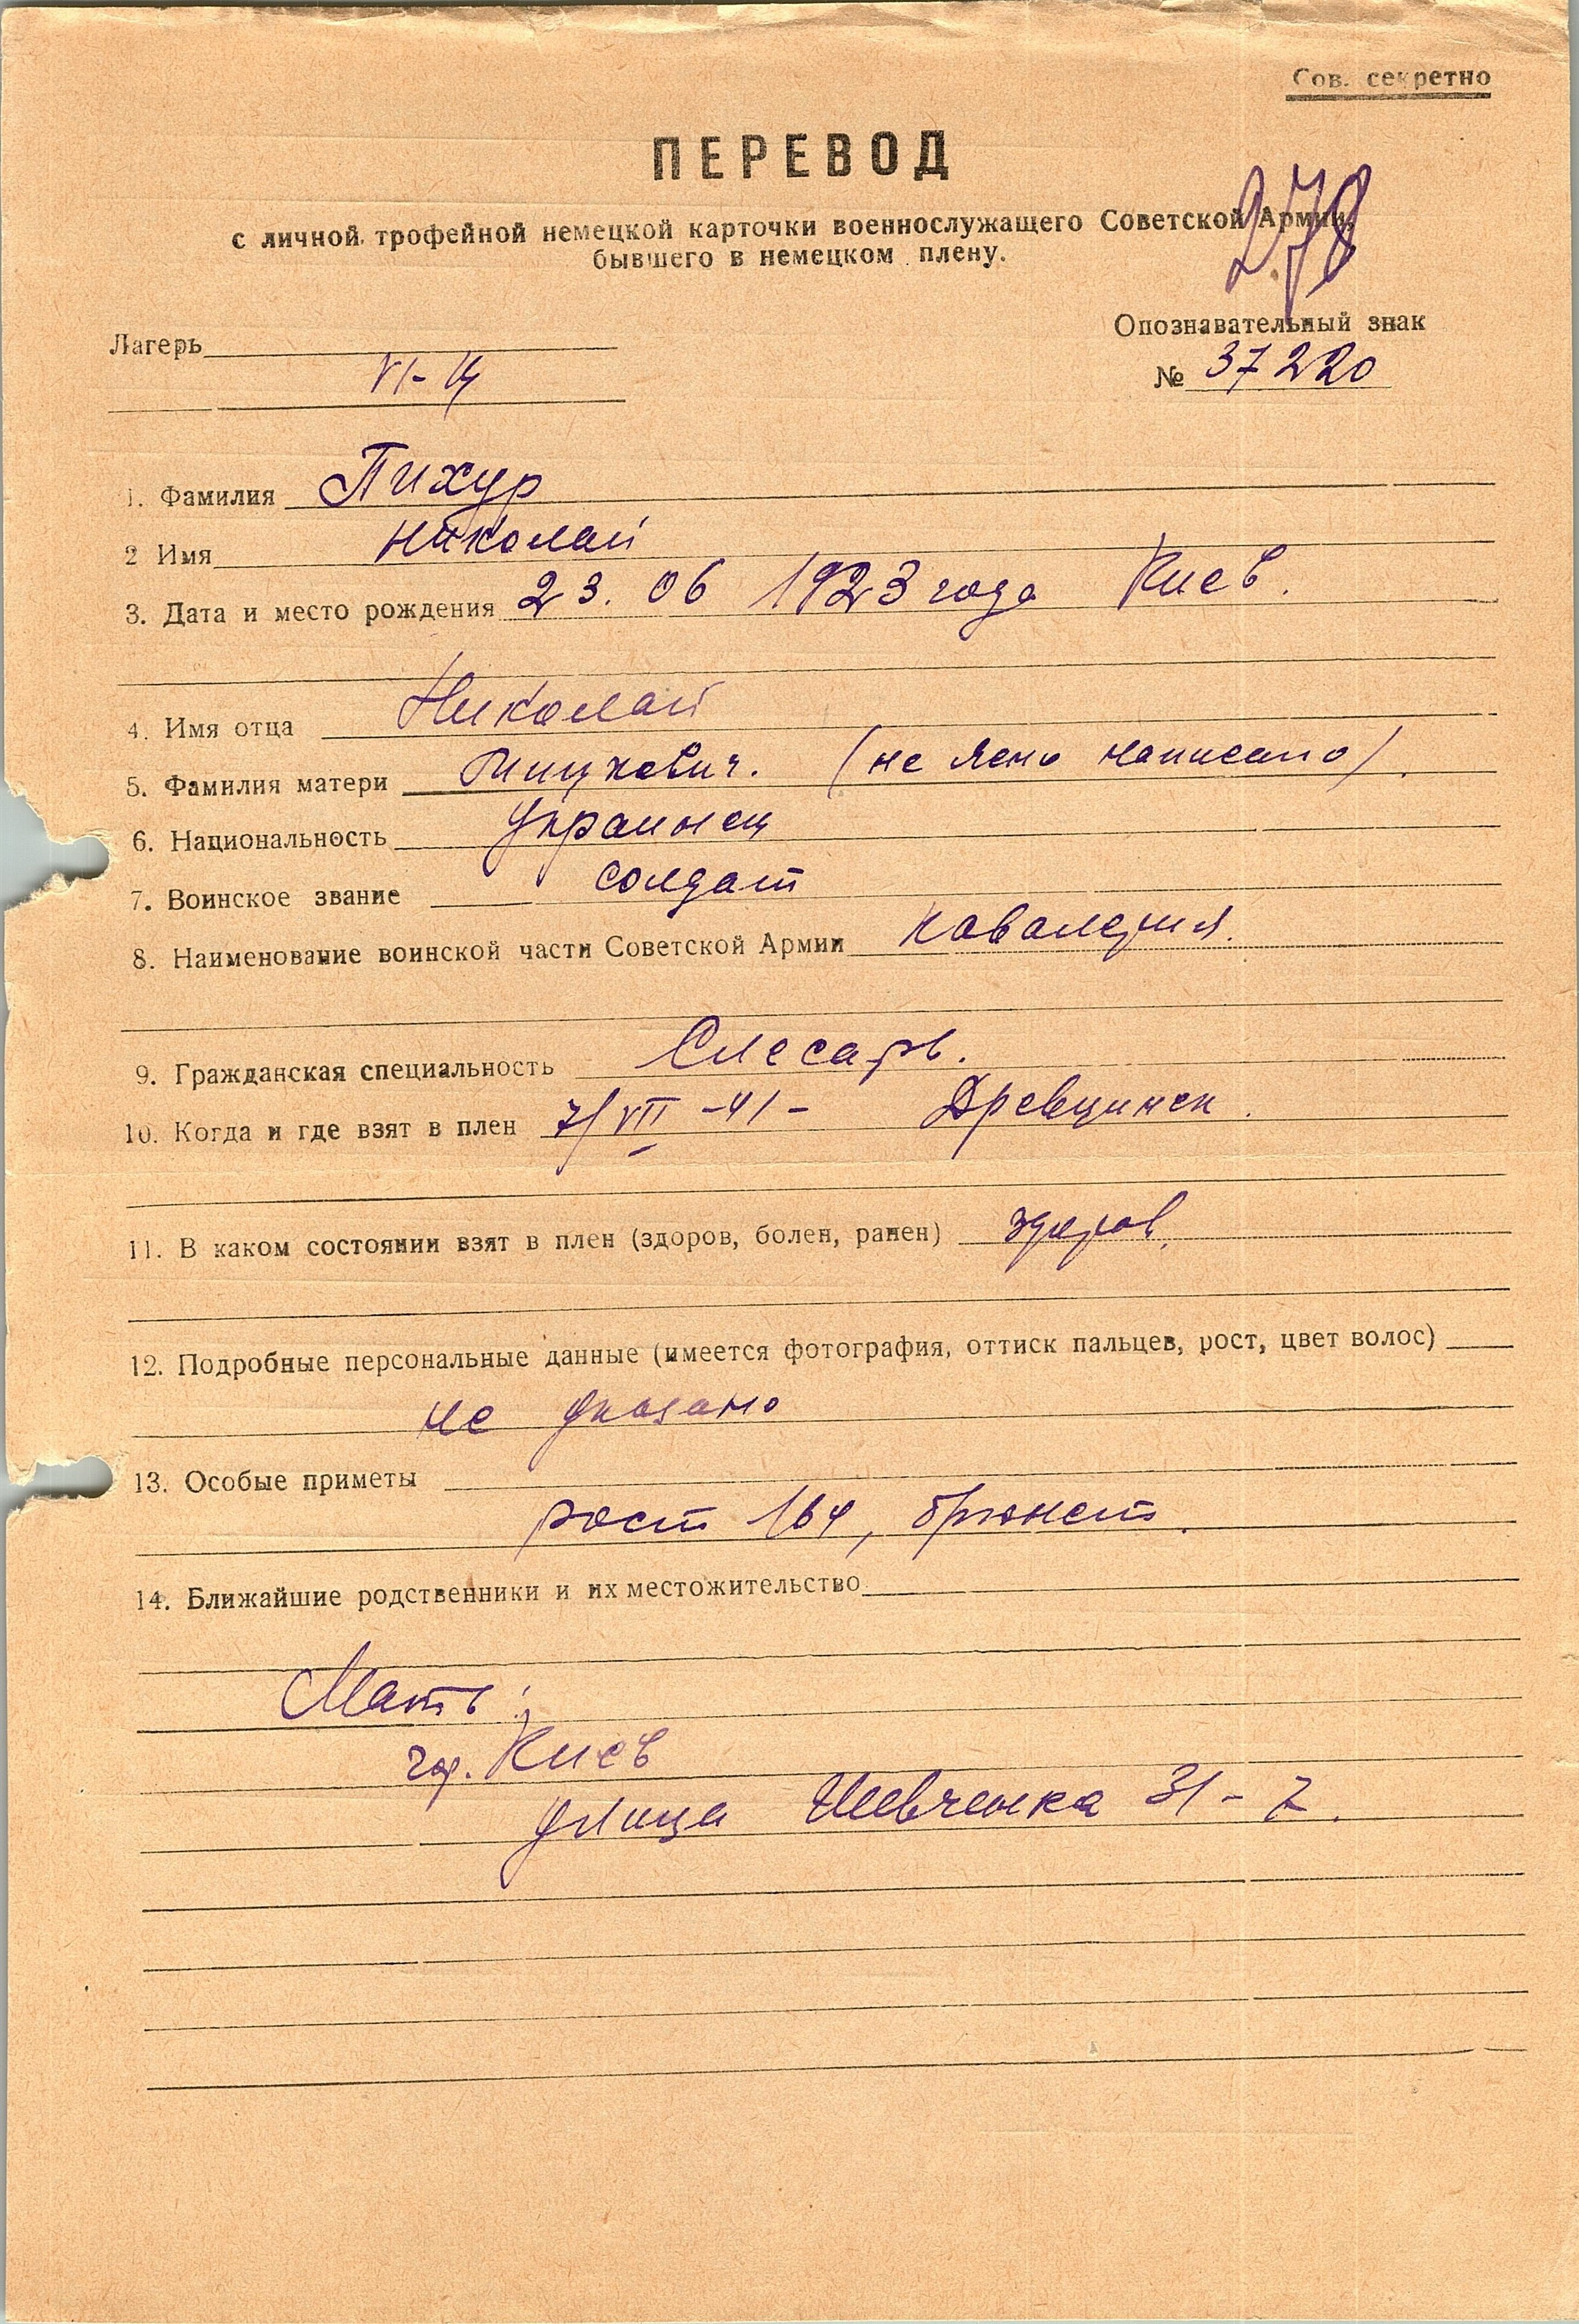 Сов. секретно
ПЕРЕВОД
с личной трофейной немецкой карточки военнослужащего Советской Армии,
бывшего в немецком плену.
278
Лагерь
Опознавательный знак
VI-Ц
№ 37220
1. Фамилия Пихур
2 Имя Николай
3. Дата и место рождения 23.06 1923 года Киев.
4. Имя отца Николай
5. Фамилия матери (не ясно написано).
6. Национальность Украинец
7. Воинское звание солдат
8. Наименование воинской части Советской Армии кавалерия.
9. Гражданская специальность Слесарь.
10. Когда и где взят в плен 7/VII -41-
11. В каком состоянии взят в плен (здоров, болен, ранен) здоров.
12. Подробные персональные данные (имеется фотография, оттиск пальцев, рост, цвет волос)
не указано
13. Особые приметы
рост 164, брюнет.
14. Ближайшие родственники и их местожительство
Мать:
гор. Киев
улица Шевченка 31-7.